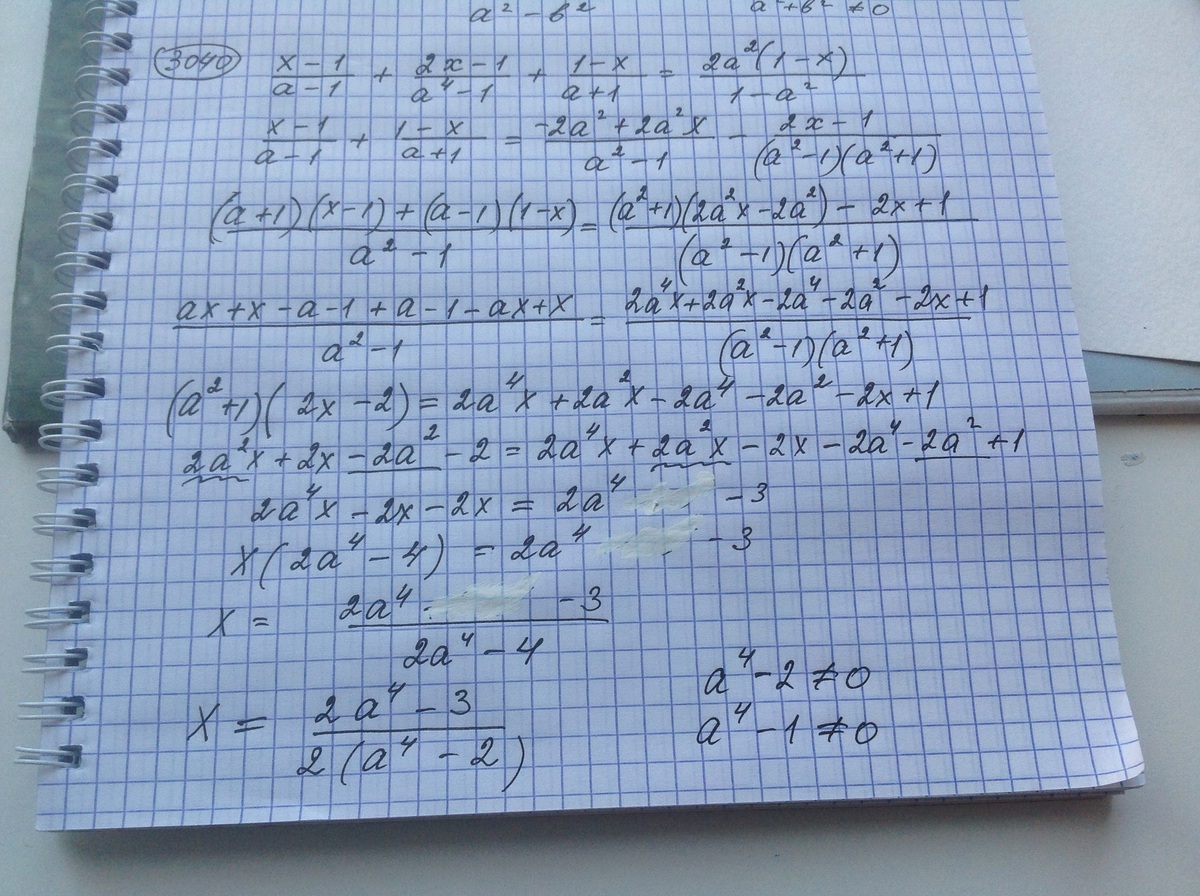 a² - b²    a² + b² ≠ 0
3040  (x - 1)/(a - 1) + (2x - 1)/(a⁴ - 1) + (1 - x)/(a + 1) = 2a²(1 - x)/(1 - a²)
(x - 1)/(a - 1) + (1 - x)/(a + 1) = (-2a² + 2a²x)/(a² - 1) - (2x - 1)/((a² - 1)(a² + 1))
((a + 1)(x - 1) + (a - 1)(1 - x))/(a² - 1) = ((a² + 1)(2a²x - 2a²) - 2x + 1)/((a² - 1)(a² + 1))
(ax + x - a - 1 + a - 1 - ax + x)/(a² - 1) = (2a⁴x + 2a²x - 2a⁴ - 2a² - 2x + 1)/((a² - 1)(a² + 1))
(a² + 1)(2x - 2) = 2a⁴x + 2a²x - 2a⁴ - 2a² - 2x + 1
2a²x + 2x - 2a² - 2 = 2a⁴x + 2a²x - 2x - 2a⁴ - 2a² + 1
2a⁴x - 2x - 2x = 2a⁴ - 3
x(2a⁴ - 4) = 2a⁴ - 3
x = (2a⁴ - 3)/(2a⁴ - 4)
x = (2a⁴ - 3)/(2(a⁴ - 2))    a⁴ - 2 ≠ 0
a⁴ - 1 ≠ 0